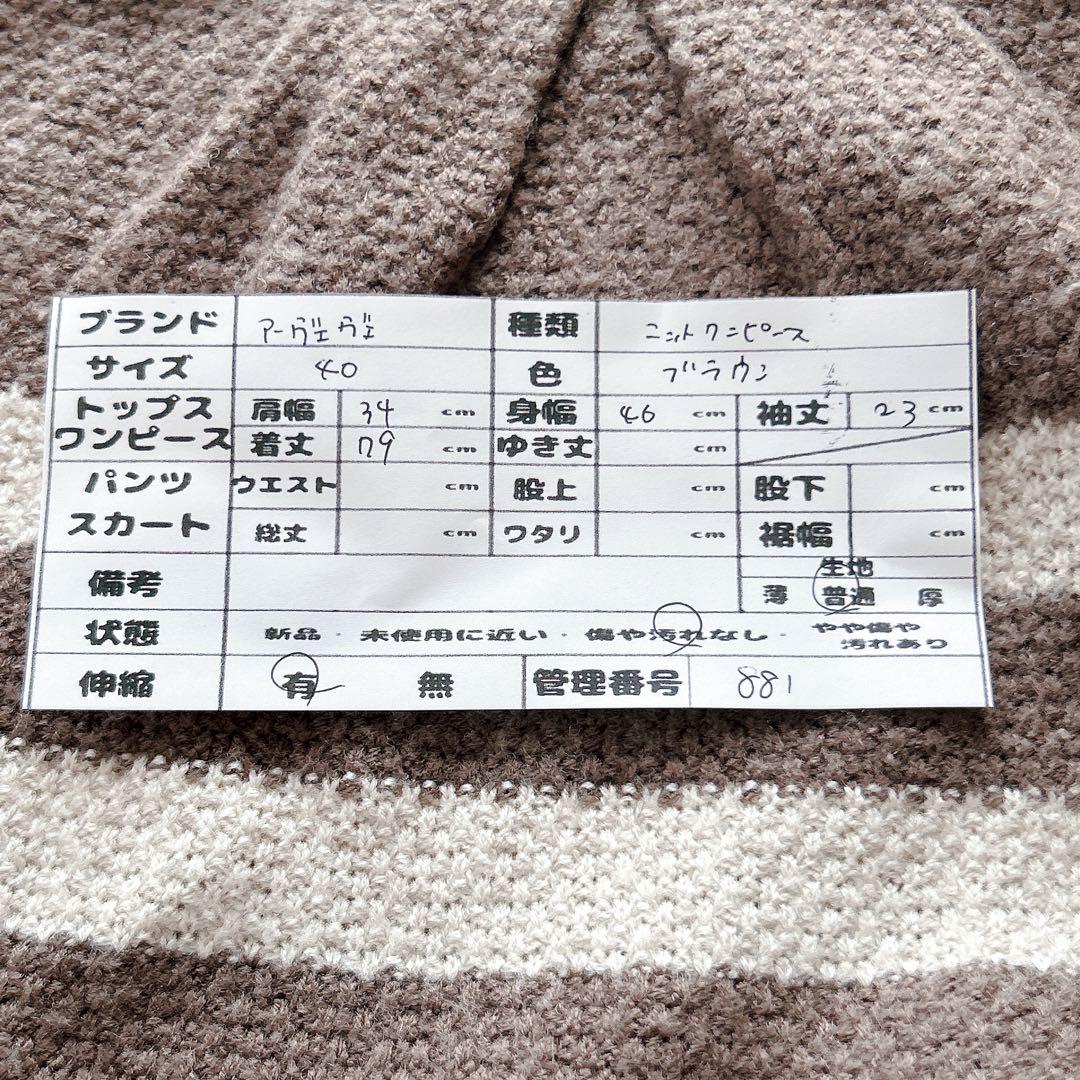 ブランド アーヴェヴェ 種類 ニットワンピース
サイズ 40 色 ブラウン
トップス ワンピース 肩幅 34 cm 身幅 46 cm 袖丈 23 cm
着丈 79 cm ゆき丈 cm
パンツ スカート ウエスト cm 股上 cm 股下 cm
総丈 cm ワタリ cm 裾幅 cm
備考 生地
薄 普通 厚
状態 新品・未使用に近い・傷や汚れなし・やや傷や
汚れあり
伸縮 有 無 管理番号 881